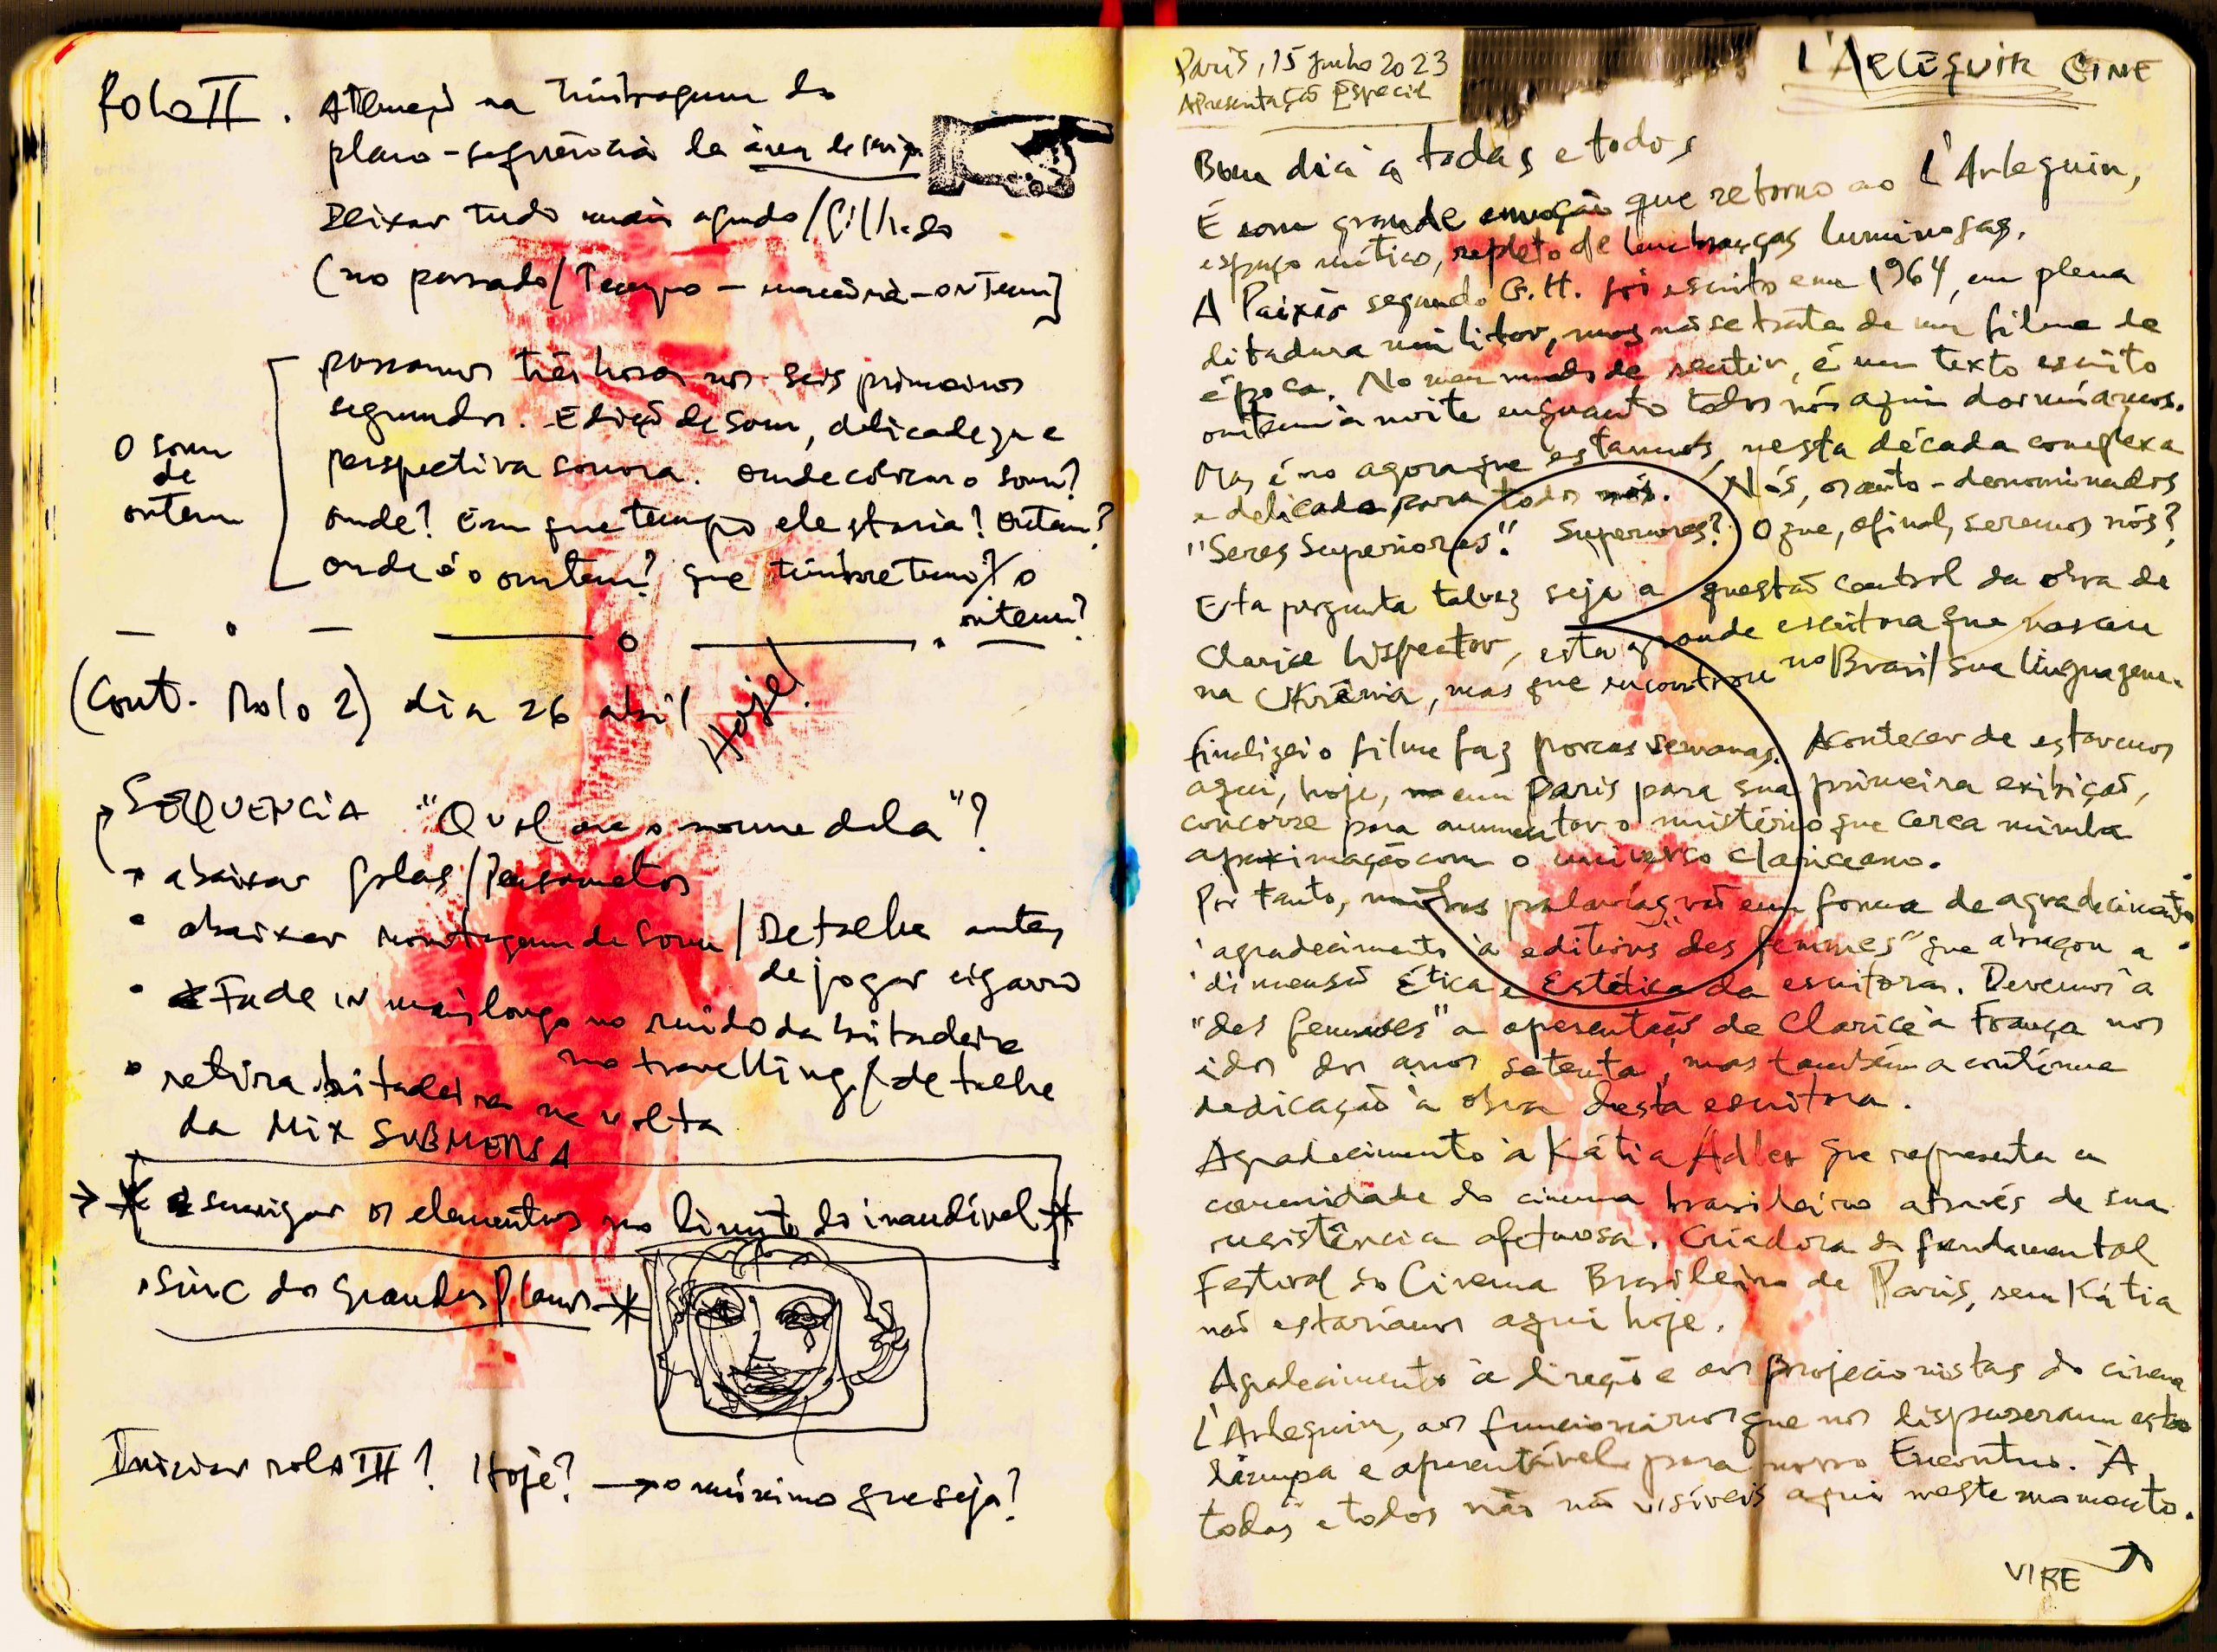 Rolo II. Atenção na timbragem do
plano-sequência da área de serviço
Deixar tudo mais agudo / filtrado
(no passado / Tempo – memória – ontem]
O som
de
ontem
passamos três horas nos seis primeiros
segundos. Edição de som, delicadeza e
perspectiva sonora. Onde colocar o som?
onde? Em que tempo ele estaria? Ontem?
onde é o ontem? que timbre tem o
ontem?
(Cont. Rolo 2) dia 26 abril Hoje!
SEQUENCIA "Qual era o nome dela"?
→ abaixar golas /
• abaixar montagem de som / Detalhe antes
de jogar cigarro
• Fade in mais longo no ruído da britadeira
no travelling / detalhe
• retira britadeira na volta
da Mix SUBMERSA
→ * enxugar os elementos no limite do inaudível *
• sinc dos grandes planos *
Iniciar rolo III? Hoje? → o máximo que seja?
Paris, 15 junho 2023
Apresentação Especial
L'Arlequin CINE
Bom dia a todas e todos
É com grande emoção que retorno ao L'Arlequin,
espaço mítico, repleto de lembranças luminosas.
A Paixão segundo G.H. foi escrito em 1964, em plena
ditadura militar, mas não se trata de um filme de
época. No meu modo de sentir, é um texto escrito
ontem à noite enquanto todos nós aqui dormíamos.
Mas é no agora que estamos, nesta década complexa
e delicada para todos nós. Nós, os auto-denominados
"Seres Superiores". Superiores? O que, afinal, seremos nós?
Esta pergunta talvez seja a questão central da obra de
Clarice Lispector, esta grande escritora que nasceu
na Ukrânia, mas que encontrou no Brasil sua linguagem.
Finalizei o filme faz poucas semanas. Acontecer de estarmos
aqui, hoje, em Paris para sua primeira exibição,
concorre para aumentar o mistério que cerca minha
aproximação com o universo clariceano.
Por tanto, minhas palavras vão em forma de agradecimento:
agradecimento à editions "des femmes" que abraçou a
dimensão Ética e Estética da escritora. Devemos à
"des femmes" a apresentação de Clarice à França nos
idos dos anos setenta, mas também a contínua
dedicação à obra desta escritora.
Agradecimento à Kátia Adler que representa a
comunidade do cinema brasileiro através de sua
resistência afetuosa. Criadora do fundamental
Festival do Cinema Brasileiro de Paris, sem Kátia
não estaríamos aqui hoje.
Agradecimento à direção e aos projecionistas do cinema
L'Arlequin, aos funcionários que nos dispuseram esta
limpa e apresentável para nosso Encontro. À
todas e todos não visíveis aqui neste momento.
VIRE